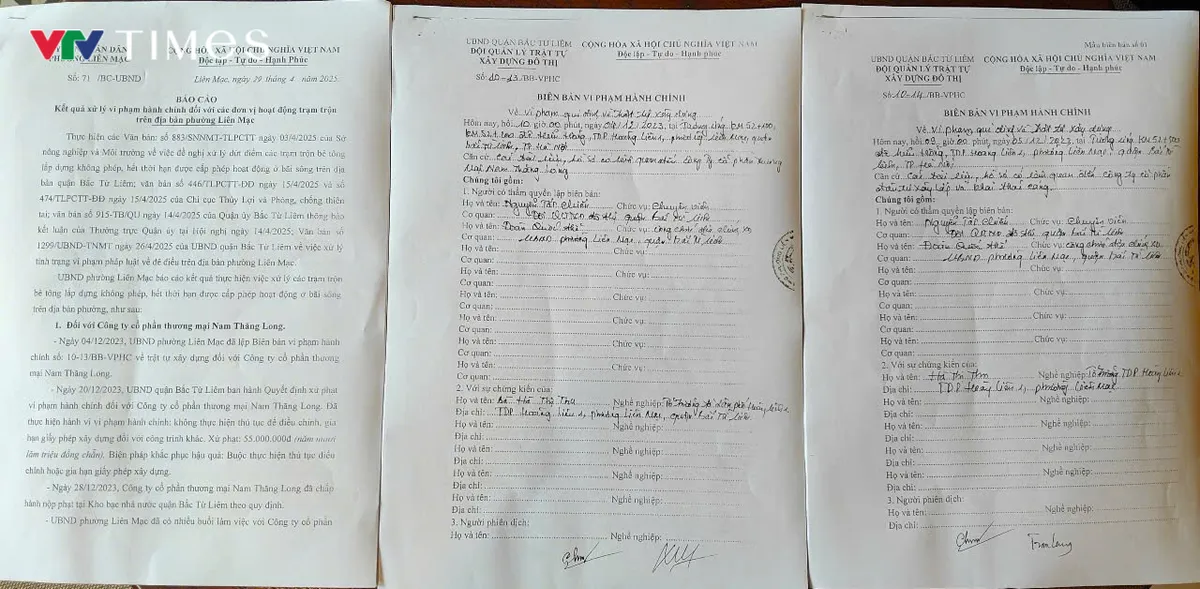 VTV TIMES
PHƯỜNG LIÊN MẠC
CỘNG HÒA XÃ HỘI CHỦ NGHĨA VIỆT NAM
Độc lập - Tự do - Hạnh Phúc
Số: 71 /BC-UBND
Liên Mạc, ngày 29 tháng 4 năm 2025.
BÁO CÁO
Kết quả xử lý vi phạm hành chính đối với các đơn vị hoạt động trạm trộn
trên địa bàn phường Liên Mạc
Thực hiện các Văn bản: số 883/SNNMT-TLPCTT ngày 03/4/2025 của Sở
nông nghiệp và Môi trường về việc đề nghị xử lý dứt điểm các trạm trộn bê tông
lắp dựng không phép, hết thời hạn được cấp phép hoạt động ở bãi sông trên địa
bàn quận Bắc Từ Liêm; văn bản số 446/TLPCTT-ĐĐ ngày 15/4/2025 và số
474/TLPCTT-ĐĐ ngày 15/4/2025 của Chi cục Thủy Lợi và Phòng, chống thiên
tai; văn bản số 915-TB/QU ngày 14/4/2025 của Quận ủy Bắc Từ Liêm thông báo
kết luận của Thường trực Quận ủy tại Hội nghị ngày 14/4/2025; Văn bản số
1299/UBND-TNMT ngày 26/4/2025 của UBND quận Bắc Từ Liêm về việc xử lý
tình trạng vi phạm pháp luật về đê điều trên địa bàn phường Liên Mạc.
UBND phường Liên Mạc báo cáo kết quả thực hiện việc xử lý các trạm trộn
bê tông lắp dựng không phép, hết thời hạn được cấp phép hoạt động ở bãi sông
trên địa bàn phường, như sau:
1. Đối với Công ty cổ phần thương mại Nam Thăng Long.
- Ngày 04/12/2023, UBND phường Liên Mạc đã lập Biên bản vi phạm hành
chính số: 10-13/BB-VPHC về trật tự xây dựng đối với Công ty cổ phần thương
mại Nam Thăng Long.
- Ngày 20/12/2023, UBND quận Bắc Từ Liêm ban hành Quyết định xử phạt
vi phạm hành chính đối với Công ty cổ phần thương mại Nam Thăng Long. Đã
thực hiện hành vi vi phạm hành chính: không thực hiện thủ tục để điều chỉnh, gia
hạn giấy phép xây dựng đối với công trình khác. Xử phạt: 55.000.000đ (năm mươi
lăm triệu đồng chẵn). Biện pháp khắc phục hậu quả: Buộc thực hiện thủ tục điều
chỉnh hoặc gia hạn giấy phép xây dựng.
- Ngày 28/12/2023, Công ty cổ phần thương mại Nam Thăng Long đã chấp
hành nộp phạt tại Kho bạc nhà nước quận Bắc Từ Liêm theo quy định.
- UBND phường Liên Mạc đã có nhiều buổi làm việc với Công ty cổ phần
UBND QUẬN BẮC TỪ LIÊM
ĐỘI QUẢN LÝ TRẬT TỰ
XÂY DỰNG ĐÔ THỊ
CỘNG HÒA XÃ HỘI CHỦ NGHĨA VIỆT NAM
Độc lập - Tự do - Hạnh Phúc
Số: 10-13/BB-VPHC
BIÊN BẢN VI PHẠM HÀNH CHÍNH
Về vi phạm qui định về trật tự xây dựng
Hôm nay, hồi 10 giờ 00 phút, ngày 04/12/2023, tại
phường Liên Mạc, quận
Căn cứ:
Mại Nam Thăng Long
Chúng tôi gồm:
1. Người có thẩm quyền lập biên bản:
Họ và tên: Nguyễn Tất Chiến Chức vụ: Chuyên viên
Cơ quan:
Họ và tên: Đoàn Quốc Chức vụ:
Cơ quan: UBND phường Liên Mạc, quận Bắc Từ Liêm
Họ và tên: Chức vụ:
Cơ quan:
Họ và tên: Chức vụ:
Cơ quan:
Họ và tên: Chức vụ:
Cơ quan:
Họ và tên: Chức vụ:
Cơ quan:
Họ và tên: Chức vụ:
Cơ quan:
2. Với sự chứng kiến của:
Họ và tên: Bà Hà Thị Thu Nghề nghiệp:
Địa chỉ: TDP Hoàng Liên 1, phường Liên Mạc, quận Bắc Từ Liêm
Họ và tên: Nghề nghiệp:
Địa chỉ:
Họ và tên: Nghề nghiệp:
Địa chỉ:
Họ và tên: Nghề nghiệp:
Địa chỉ:
3. Người phiên dịch:
Họ và tên: Nghề nghiệp:
Mẫu biên bản số 01
UBND QUẬN BẮC TỪ LIÊM
ĐỘI QUẢN LÝ TRẬT TỰ
XÂY DỰNG ĐÔ THỊ
CỘNG HÒA XÃ HỘI CHỦ NGHĨA VIỆT NAM
Độc lập - Tự do - Hạnh Phúc
Số: 10-14/BB-VPHC
BIÊN BẢN VI PHẠM HÀNH CHÍNH
Về vi phạm qui định về trật tự xây dựng
Hôm nay, hồi 09 giờ 00 phút, ngày 05/12/2023, tại
phường Liên Mạc, quận Bắc Từ
Liêm, TP Hà Nội
Căn cứ:
Chúng tôi gồm:
1. Người có thẩm quyền lập biên bản:
Họ và tên: Nguyễn Tất Chiến Chức vụ: Chuyên viên
Cơ quan:
Họ và tên: Đoàn Quốc Chức vụ:
Cơ quan: UBND phường Liên Mạc, quận Bắc Từ Liêm
Họ và tên: Chức vụ:
Cơ quan:
Họ và tên: Chức vụ:
Cơ quan:
Họ và tên: Chức vụ:
Cơ quan:
Họ và tên: Chức vụ:
Cơ quan:
2. Với sự chứng kiến của:
Họ và tên: Hà Thị Thu Nghề nghiệp:
Địa chỉ: TDP Hoàng Liên 1, phường Liên Mạc
Họ và tên: Nghề nghiệp:
Địa chỉ:
Họ và tên: Nghề nghiệp:
Địa chỉ:
Họ và tên: Nghề nghiệp:
Địa chỉ:
3. Người phiên dịch:
Họ và tên: Nghề nghiệp:
Địa chỉ: